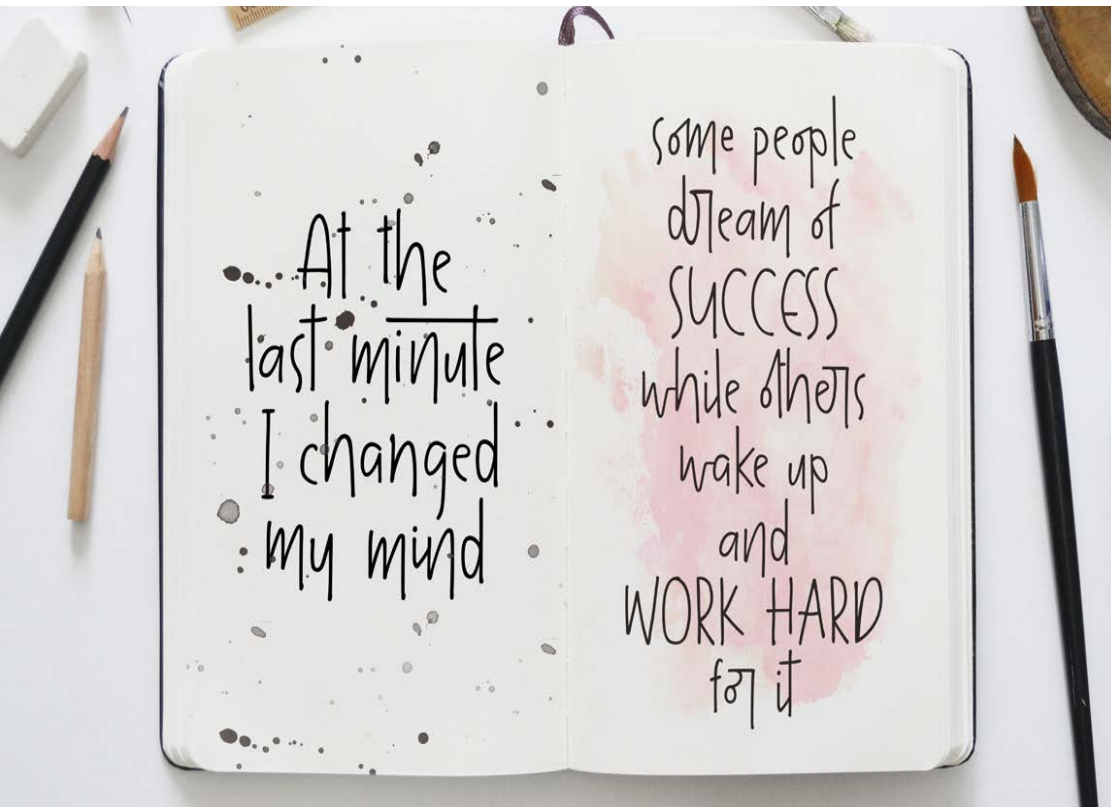 At the
last minute
I changed
my mind
some people
dream of
SUCCESS
while others
wake up
and
WORK HARD
for it